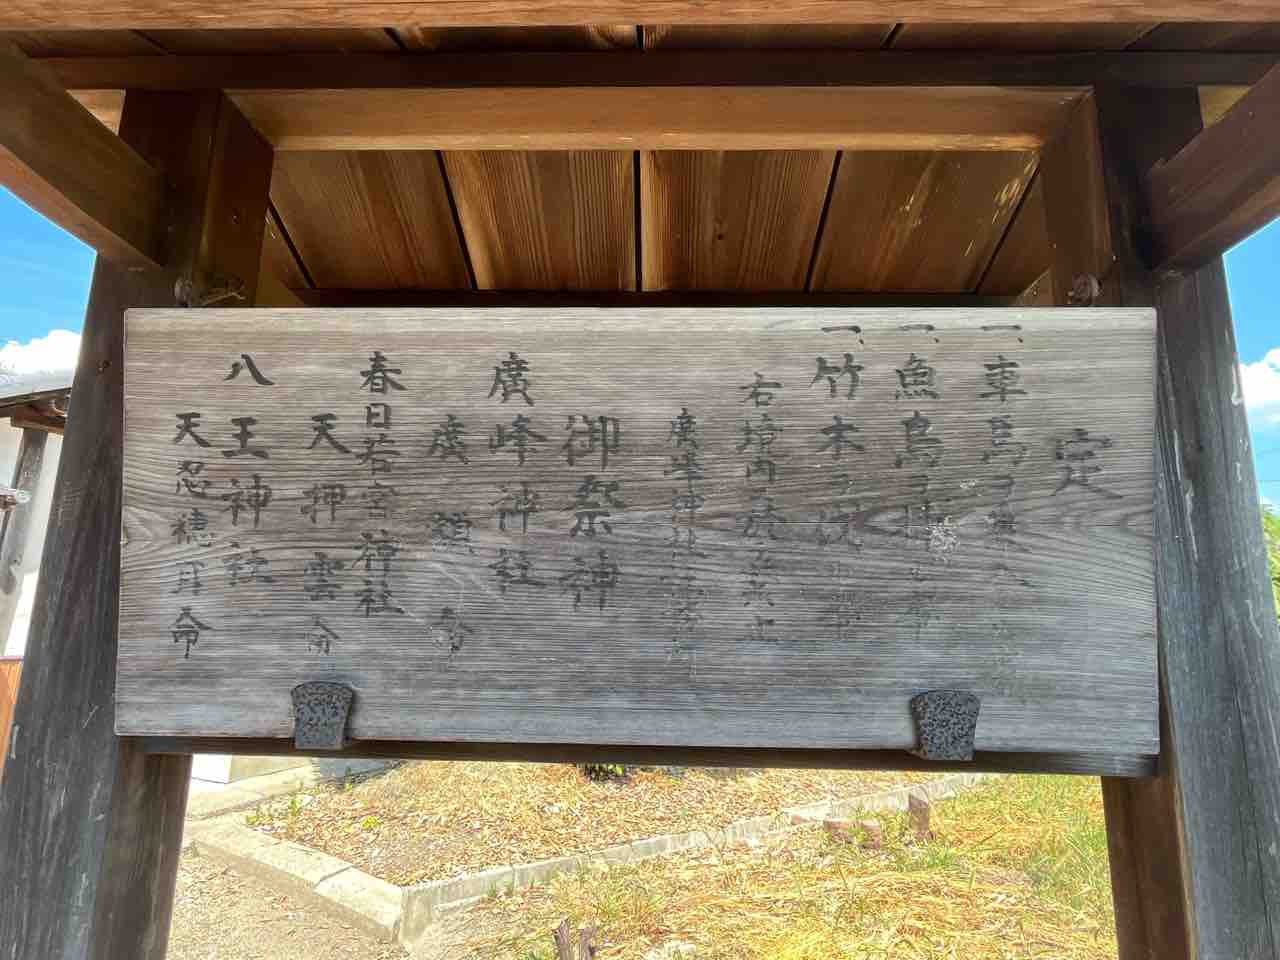 定
一、車馬ヲ乗入
一、魚鳥ヲ捕
一、竹木ヲ伐
右境内ニ於テ禁止
廣峰神社社務所
御祭神
廣峰神社
廣頬命
春日若宮神社
天押雲命
八王神社
天忍穂耳命